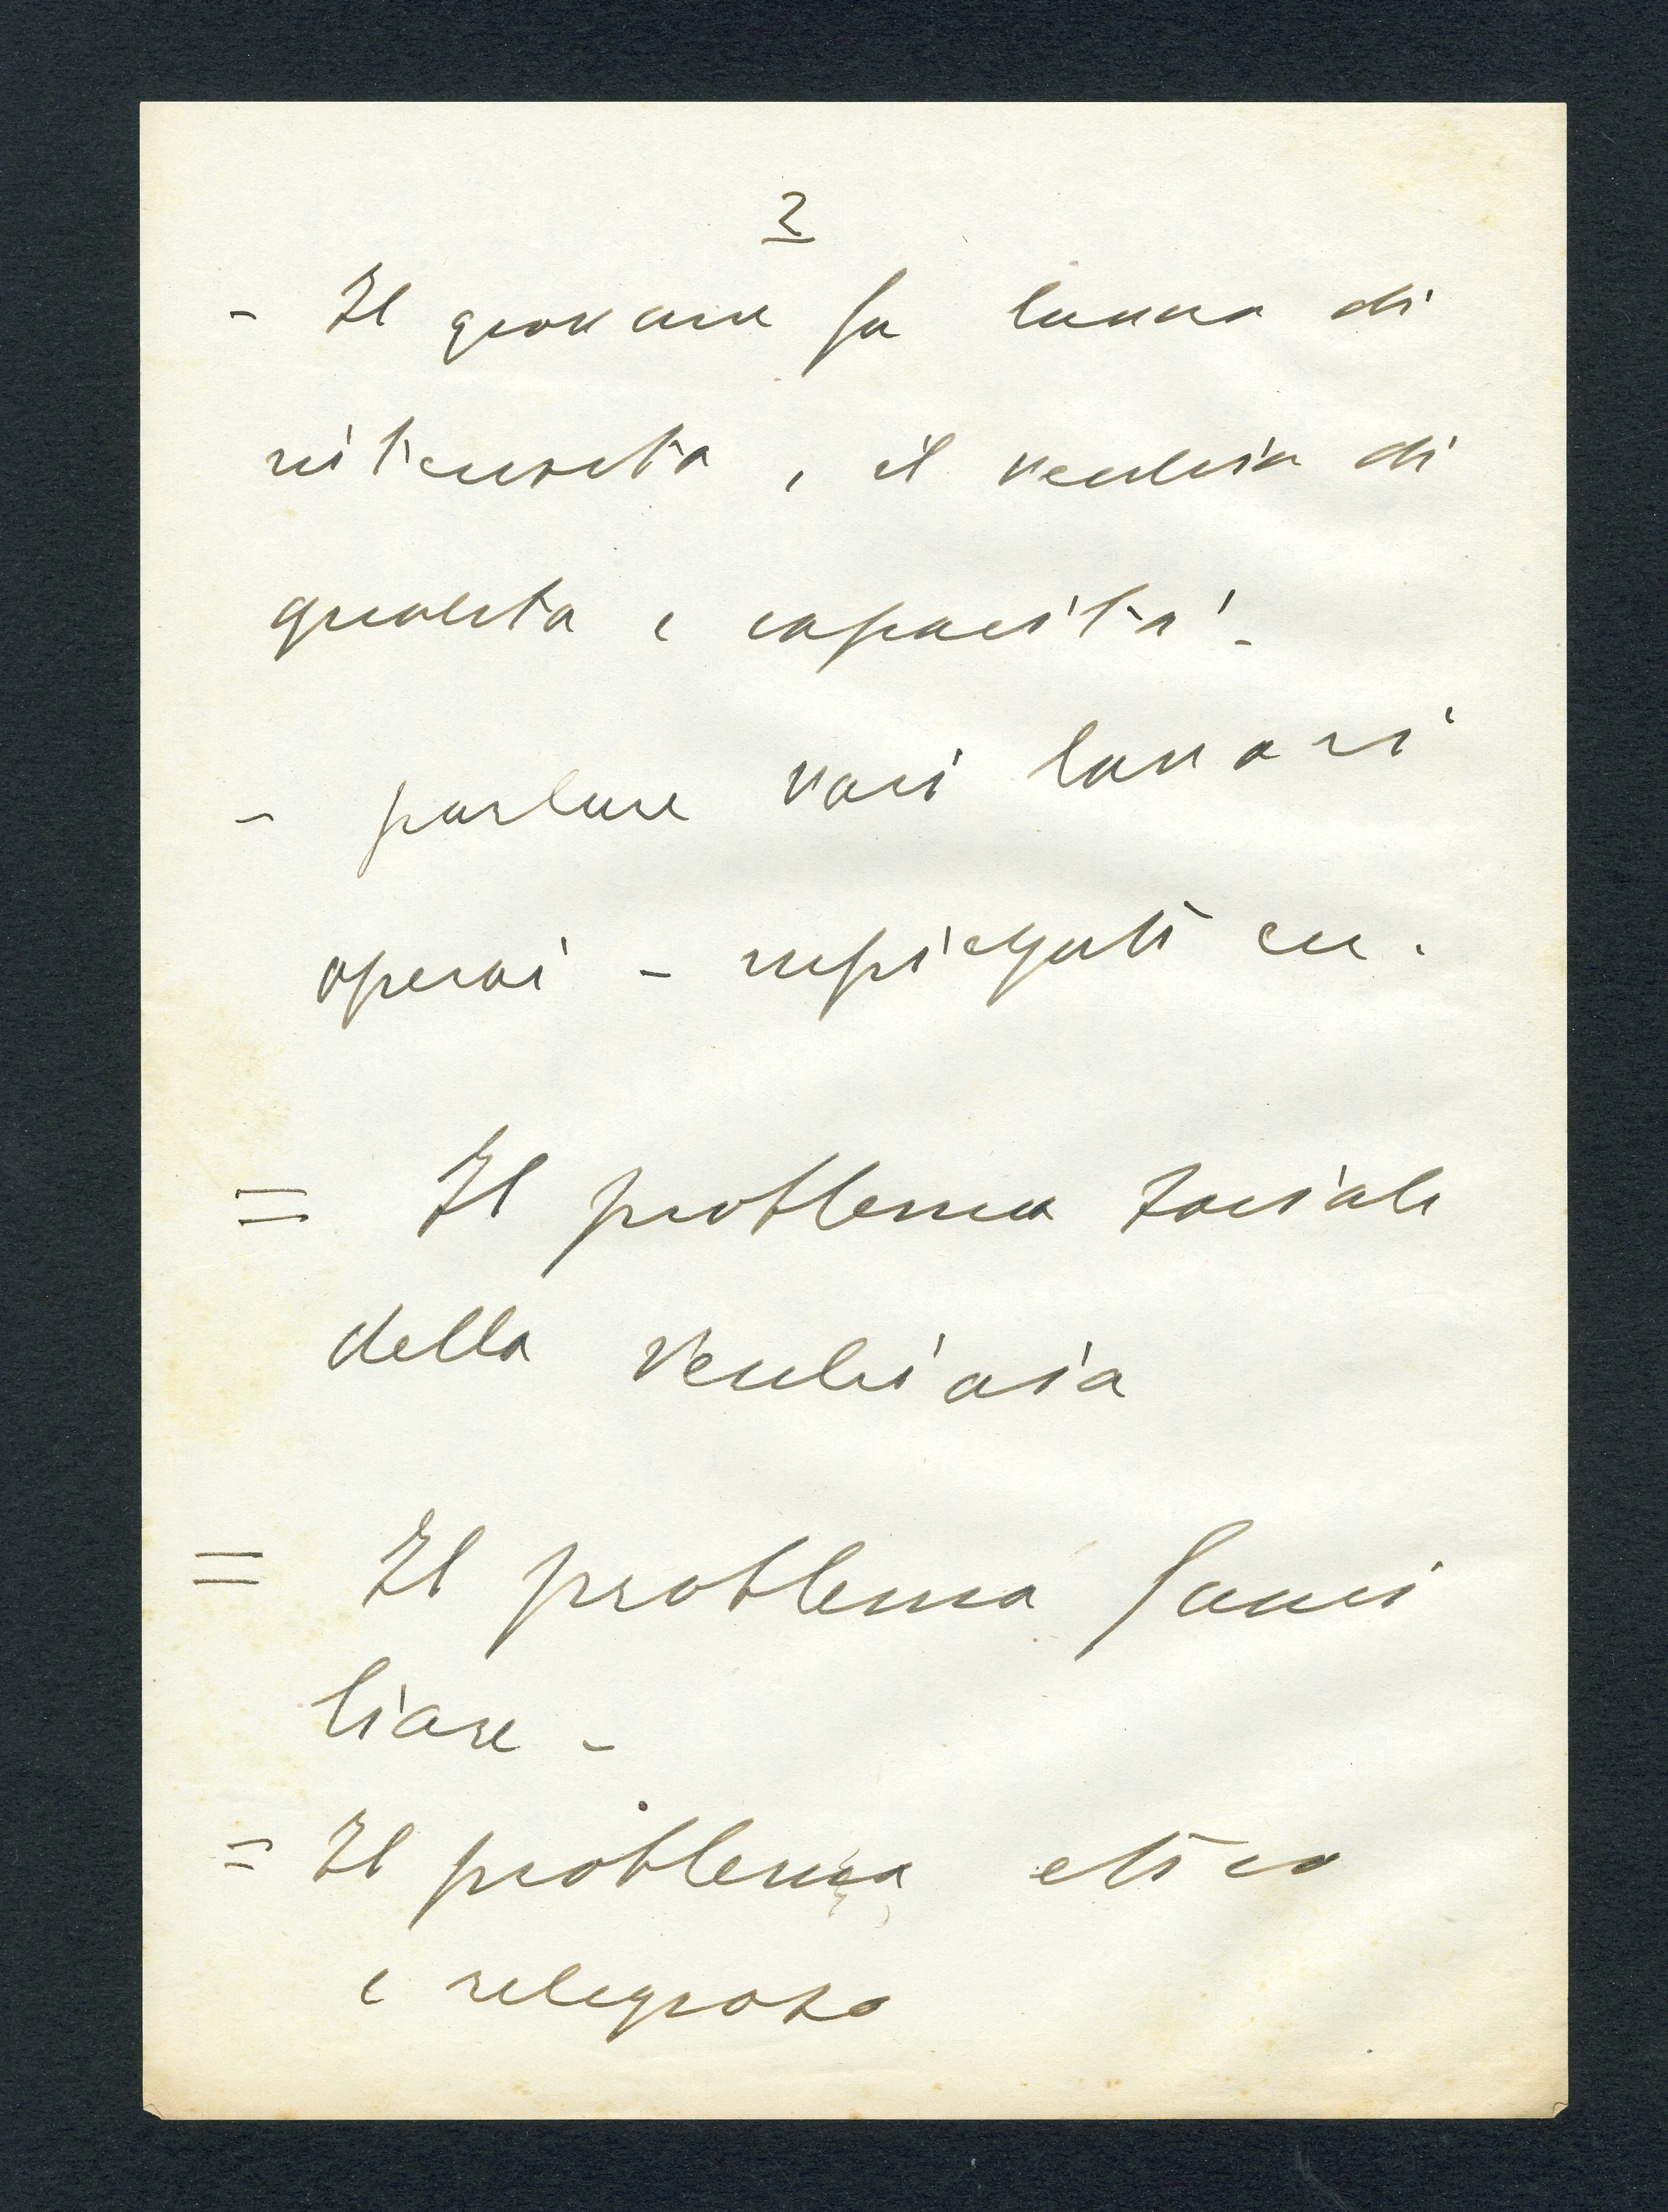 2
- Il giovane fa lavoro di
intensità, il vecchio di
qualità e capacità -
- parlare vari lavori
operai - impiegati ecc.
= Il problema sociale
della vecchiaia
= Il problema fami
liare -
= Il problema etico
e religioso